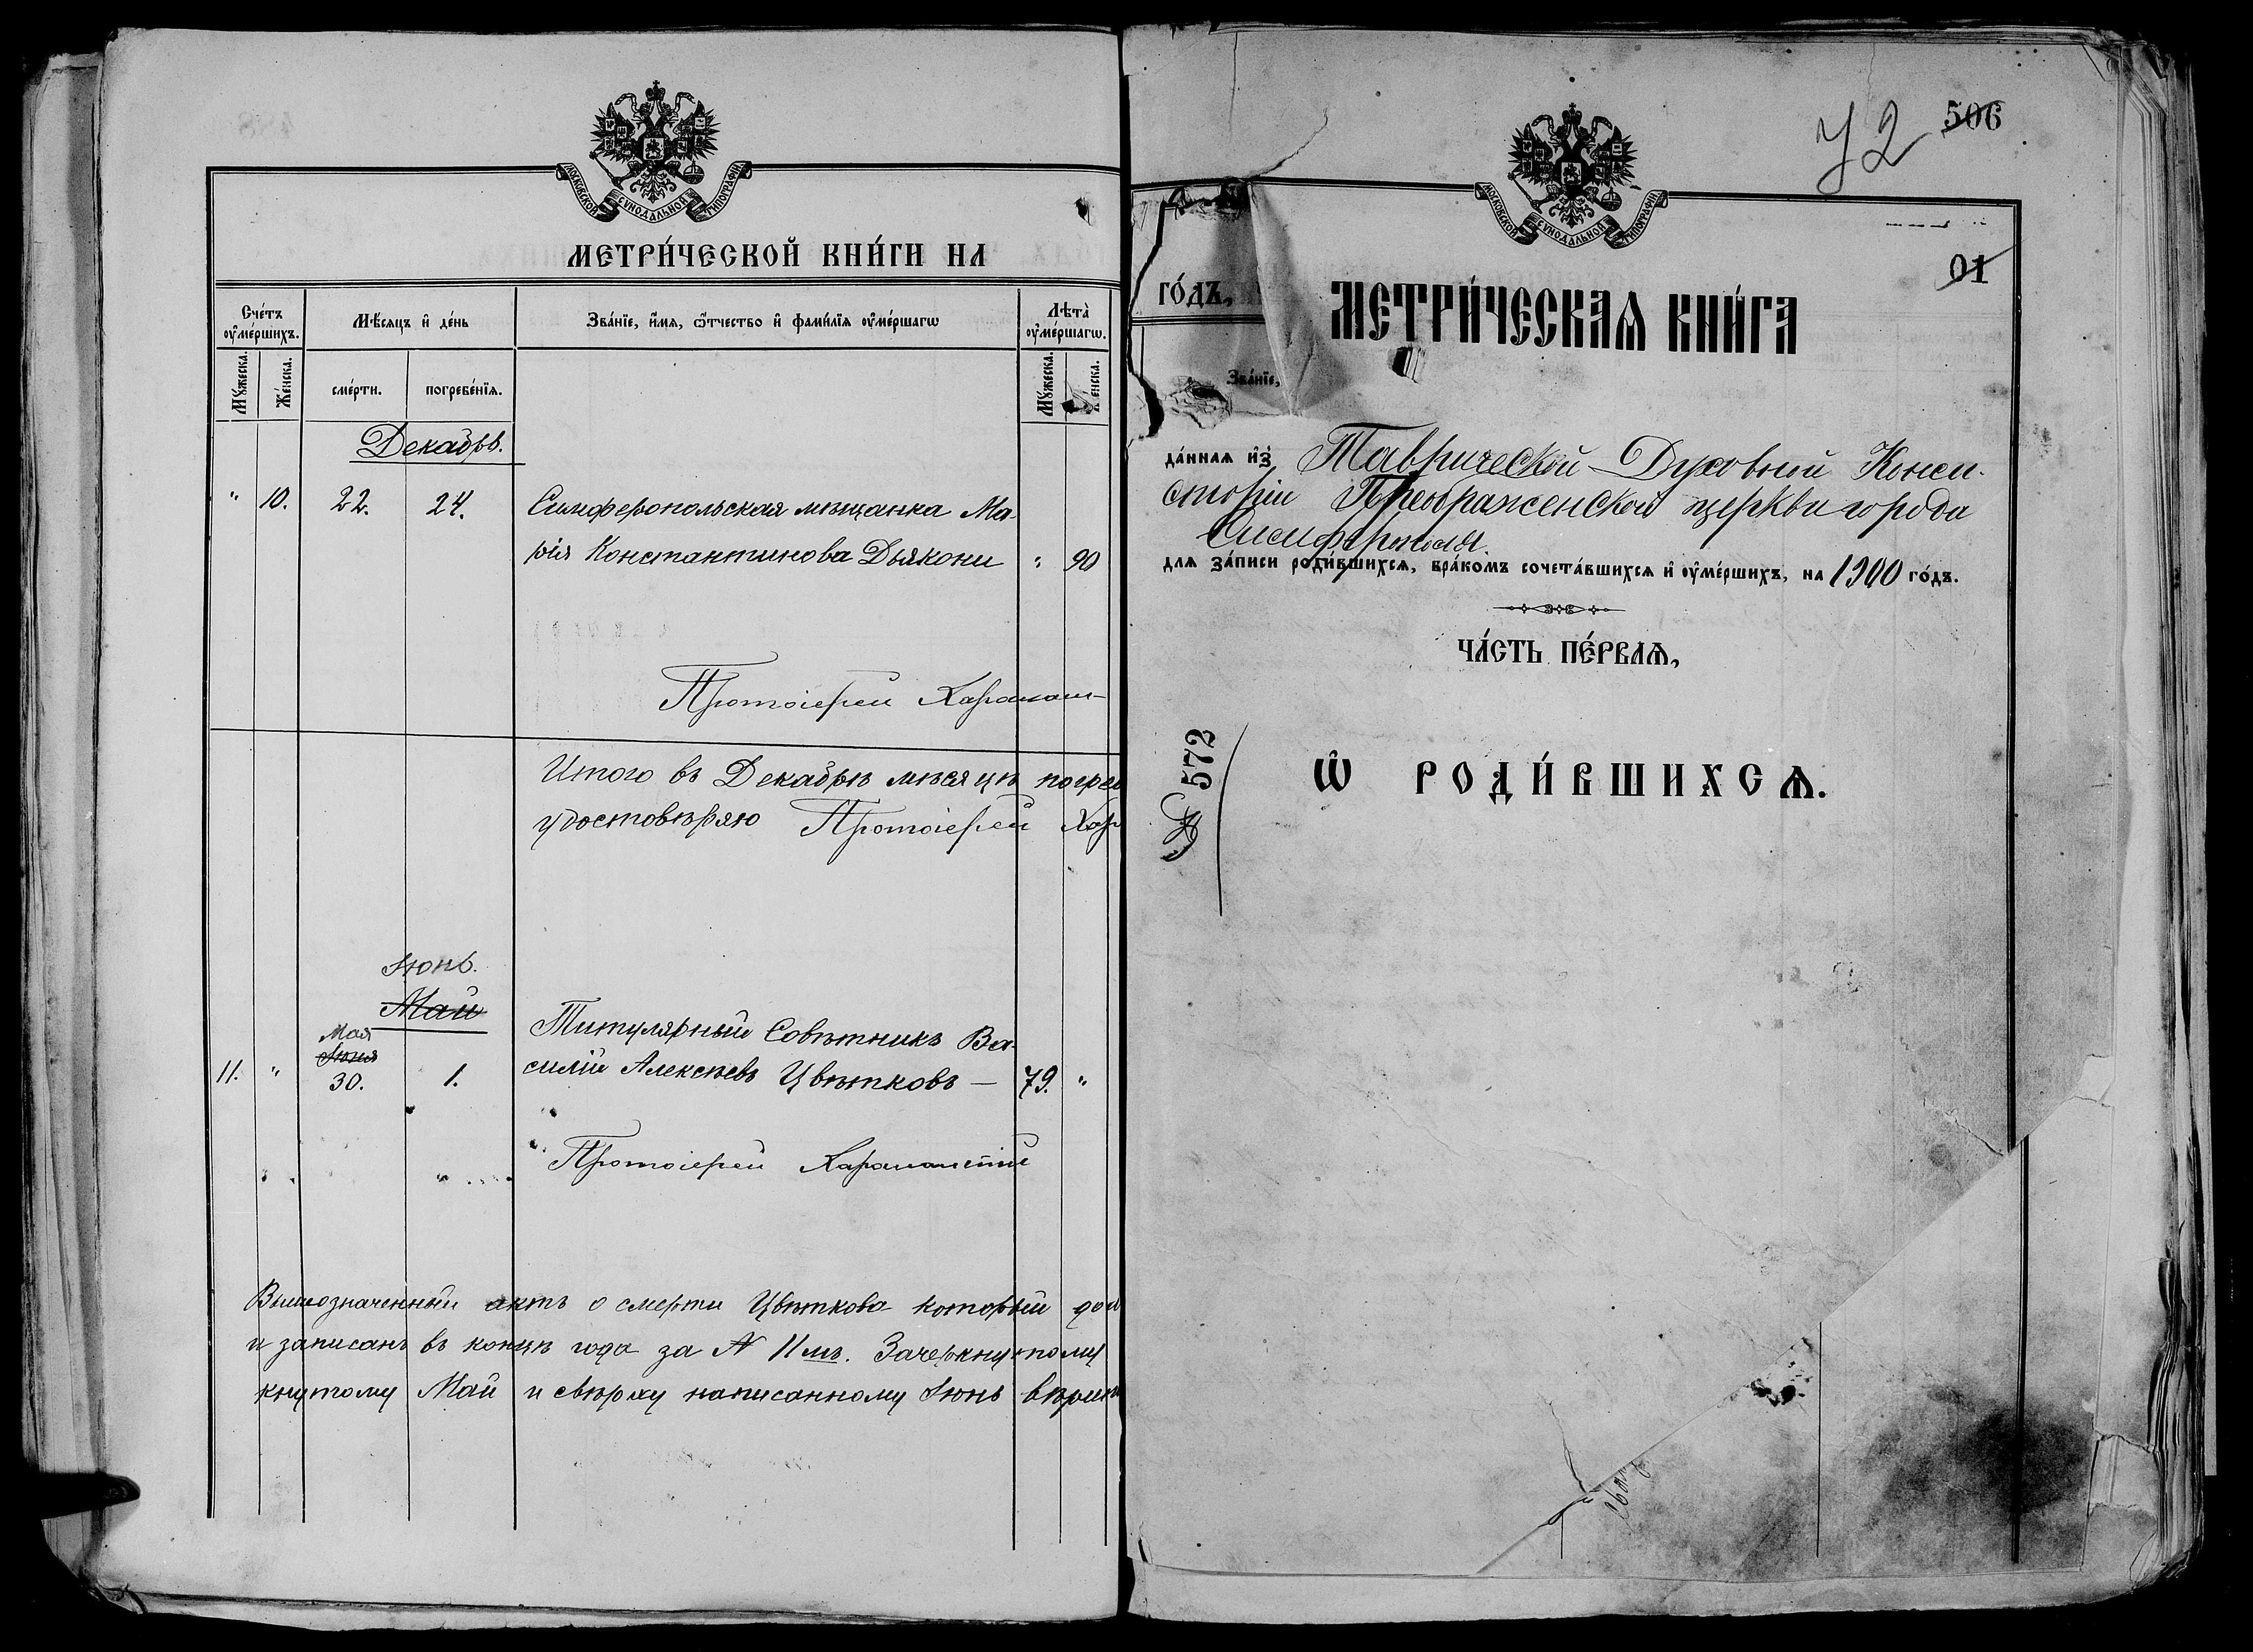 МОСКОВСКОЙ СѴНОДАЛЬНОЙ ТИПОГРАФІИ
МЕТРИ́ЧЕСКОЙ КНИ́ГИ НА
Сче́тъ ᲂу҆ме́ршихъ.
Мѣ́сяцъ и҆ де́нь
Зва́нїе, и҆́мѧ, ѻ҆́тчество и҆ фами́лїѧ ᲂу҆ме́ршагѡ
Лѣ́та ᲂу҆ме́ршагѡ.
Мꙋ́жеска.
Же́нска.
сме́рти.
погребе́нїѧ.
Мꙋ́жеска.
Же́нска.
Декабрь.
" 10. 22. 24. Симферопольская мѣщанка Ма-
рія Константинова Дьякони " 90
Протоіерей
Итого въ Декабрѣ мѣсяцѣ погреб
удостовѣряю Протоіерей Хар
Іюнь.
Май
Мая
Іюня
11. " 30. 1. Титулярный Совѣтникъ Ва-
силій Алексѣевъ Цвѣтковъ — 79. "
Протоіерей
Вышеозначенный актъ о смерти Цвѣткова который
и записанъ въ концѣ года за № 11мъ. Зачеркнутому
кнутому Май и свѣрху написанному Іюнь вѣрить
У2
506
МОСКОВСКОЙ СѴНОДАЛЬНОЙ ТИПОГРАФІИ
01
го́дъ,
МЕТРИ́ЧЕСКАѦ КНИ́ГА
Зва́нїе,
да́ннаѧ и҆з̾ Таврической Духовной Конси-
сторіи Преображенской церкви города
Симферополя.
длѧ за́писи роди́вшихсѧ, бра́комъ сочета́вшихсѧ и҆ ᲂу҆ме́ршихъ, на 1900 го́дъ.
ЧА́СТЬ ПЕ́РВАѦ,
№ 572
Ѡ҆ РОДИ́ВШИХСѦ.